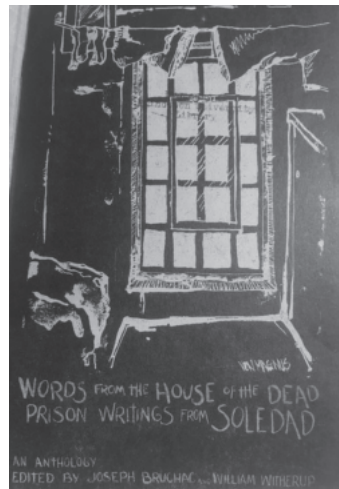 WORDS FROM THE HOUSE OF THE DEAD
PRISON WRITINGS FROM SOLEDAD
AN ANTHOLOGY
EDITED BY JOSEPH BRUCHAC AND WILLIAM WITHERUP